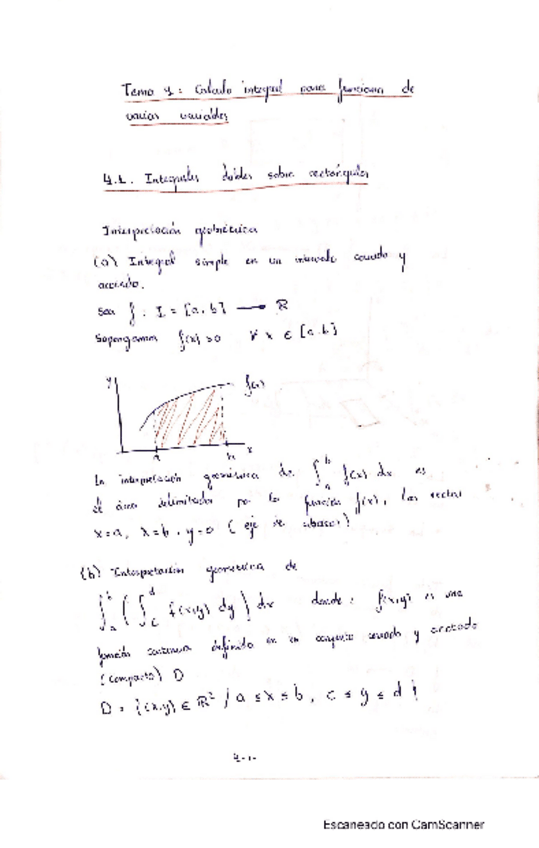 Tema 4: Calculo integral para funciones de
varias variables
4.1. Integrales dobles sobre rectángulos
Interpretación geométrica
(a) Integral simple en un intervalo cerrado y
acotado.
sea f: I = [a,b] → R
Supongamos f(x) > 0 ∀ x ∈ [a,b]
y
f(x)
a
x
La interpretación geométrica de ∫_a^b f(x) dx es
el área delimitada por la función f(x), las rectas
x=a, x=b, y=0 (eje de abscisas)
(b) Interpretación geométrica de
∫_a^b ( ∫_c^d f(x,y) dy ) dx donde: f(x,y) es una
función continua definida en un conjunto cerrado y acotado
(compacto) D
D = {(x,y) ∈ R² / a ≤ x ≤ b, c ≤ y ≤ d}
4-1-
Escaneado con CamScanner